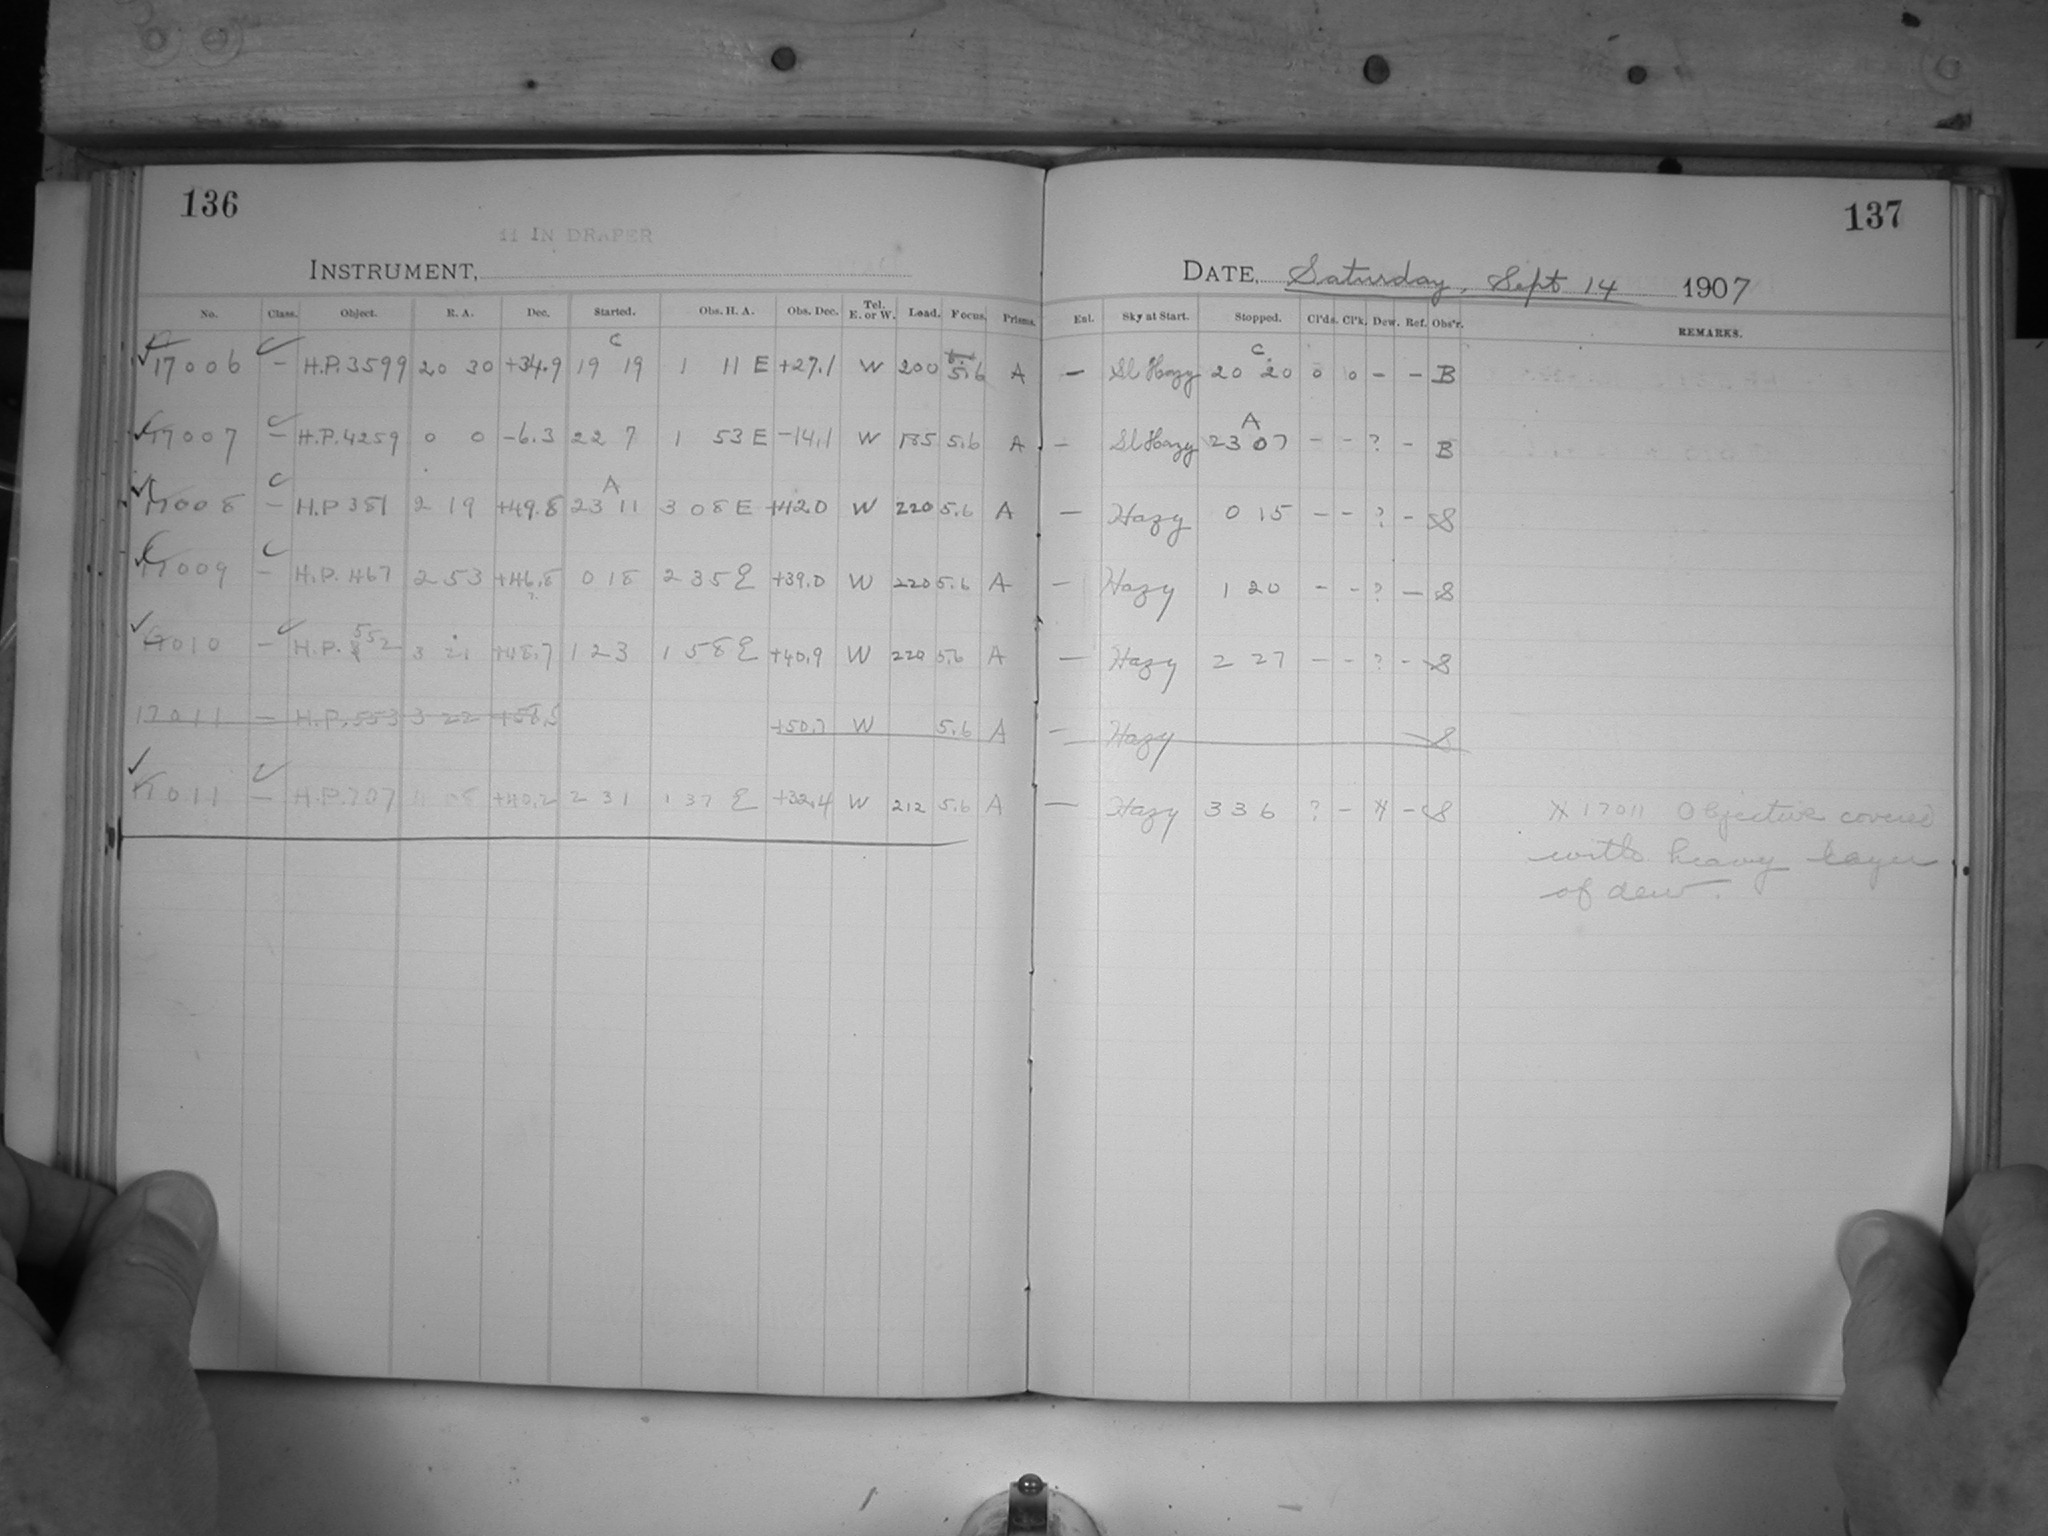 136
137
11 IN DRAPER
INSTRUMENT,
DATE, Saturday, Sept 14 1907
No. Class. Object. R. A. Dec. Started. Obs. H. A. Obs. Dec. Tel. E. or W. Load. Focus. Prisms. Eal. Sky at Start. Stopped. Cl'ds. Cl'k. Dew. Ref. Obs'r. REMARKS.
C C
17006 – H.P. 3599 20 30 +34.9 19 19 1 11 E +27.1 W 200 5.6 A – Sl Hazy 20 20 0 0 – – B
A
17007 – H.P. 4259 0 0 -6.3 22 7 1 53 E -14.1 W 185 5.6 A – Sl Hazy 23 07 – – ? – B
A
17008 – H.P 381 2 19 +49.8 23 11 3 08 E +42.0 W 220 5.6 A – Hazy 0 15 – – ? – S
17009 – H.P. 467 2 53 +46.8 0 18 2 35 E +39.0 W 220 5.6 A – Hazy 1 20 – – ? – S
17010 – H.P. 552 3 21 +48.7 1 23 1 58 E +40.9 W 220 5.6 A – Hazy 2 27 – – ? – S
17011 – H.P. 553 3 22 +58.5 +50.7 W 5.6 A – Hazy – S
17011 – H.P. 707 +40.2 2 31 1 37 E +32.4 W 212 5.6 A – Hazy 3 36 ? – X – S X 17011 Objective covered
with heavy layer
of dew.